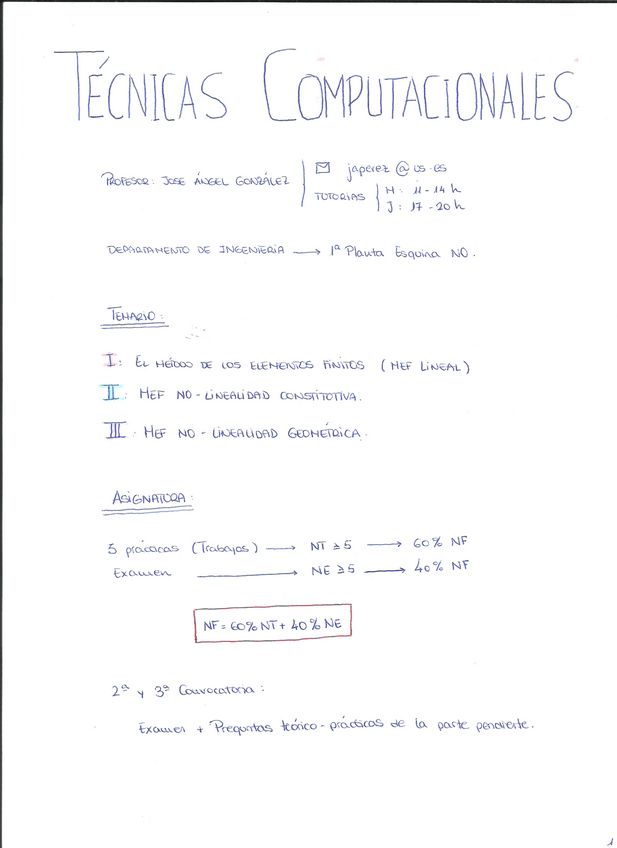 TÉCNICAS COMPUTACIONALES
PROFESOR: JOSE ÁNGEL GONZÁLEZ
japerez @ us.es
TUTORIAS
M: 11-14 h
J: 17-20 h
DEPARTAMENTO DE INGENIERIA → 1ª Planta Esquina NO.
TEMARIO:
I: EL MÉTODO DE LOS ELEMENTOS FINITOS (MEF LINEAL)
II: MEF NO-LINEALIDAD CONSTITUTIVA.
III: MEF NO-LINEALIDAD GEOMÉTRICA.
ASIGNATURA:
5 prácticas (Trabajos) → NT ≥ 5 → 60% NF
Examen → NE ≥ 5 → 40% NF
NF = 60% NT + 40% NE
2ª y 3ª Convocatoria:
Examen + Preguntas teórico-prácticas de la parte pendiente.
1